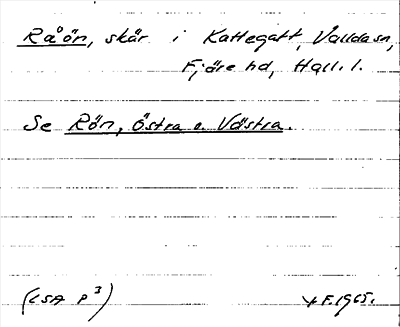 Råön, skär i Kattegatt, Vallda sn,
Fjäre hd, Hall. l.
Se Rön, Östra o. Västra.
(LSA P³)
F. 1965.